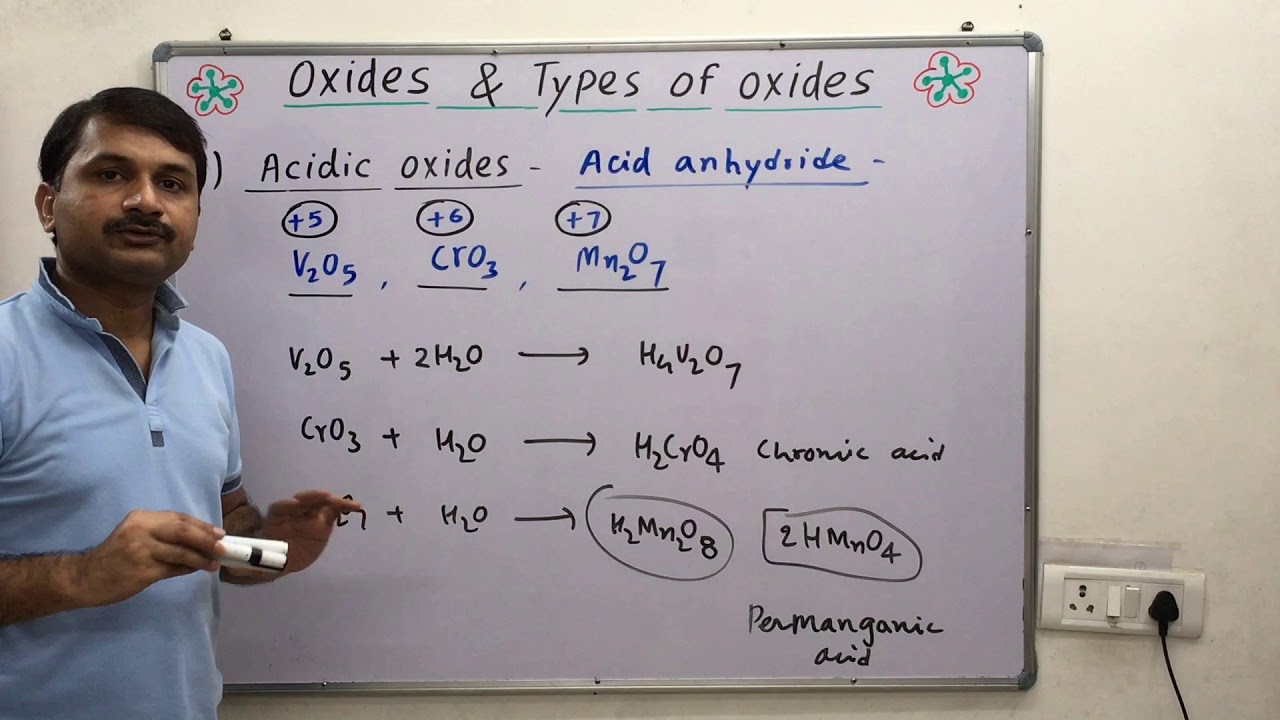 Oxides & Types of oxides
) Acidic oxides - Acid anhydride -
+5 +6 +7
V₂O₅ , CrO₃ , Mn₂O₇
V₂O₅ + 2H₂O ⟶ H₄V₂O₇
CrO₃ + H₂O ⟶ H₂CrO₄ Chromic acid
₂O₇ + H₂O ⟶ H₂Mn₂O₈ 2HMnO₄
Permanganic
acid